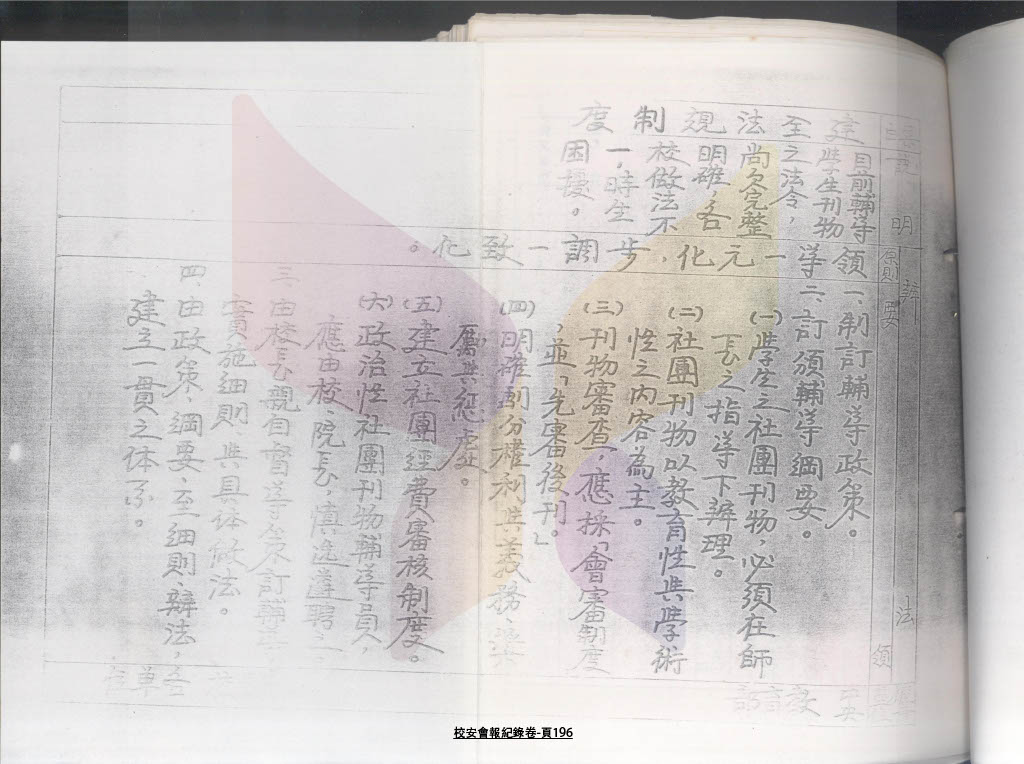 說明
辦法
原則
要領
建法規制度
目前輔導
學生刊物
至之法令,
尚欠完整
明確,各
校做法不
一,時生
困擾。
領導一元化,步調一致化。
一、制訂輔導政策。
二、訂頒輔導綱要。
㈠學生之社團刊物,必須在師
長之指導下辦理。
㈡社團刊物以教育性與學術
性之內容為主。
㈢刊物審查,應採「會審制度
,並「先審後刊」。
㈣明確劃分權利與義務、獎
勵與懲處。
㈤建立社團經費審核制度。
㈥政治性社團刊物輔導員,
應由校、院長,慎選遴聘之。
三、由校長親自督導策訂輔導
實施細則、與具体做法。
四、由政策、綱要、至細則、辦法,
建立一貫之体系。
教育部
單
校安會報紀錄卷-頁196